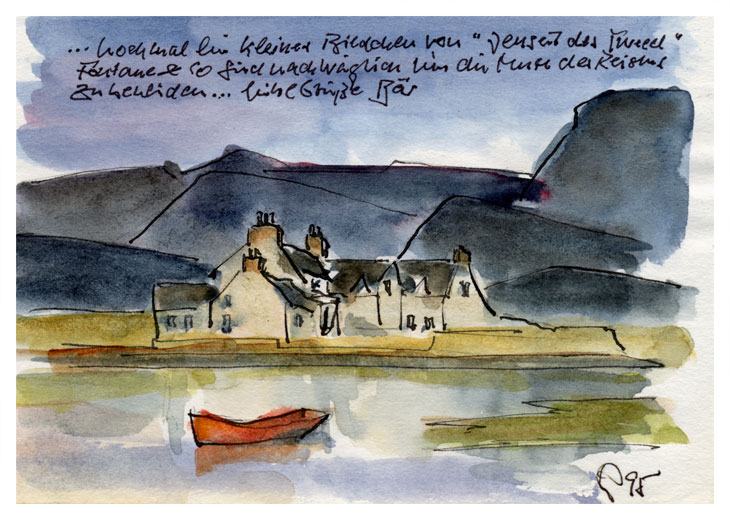 ... nochmal ein kleines Bildchen von "Jenseit des Tweed"
Fontane & so sind nachträglich um die Reise
zu ... liebe Grüße Bär
95